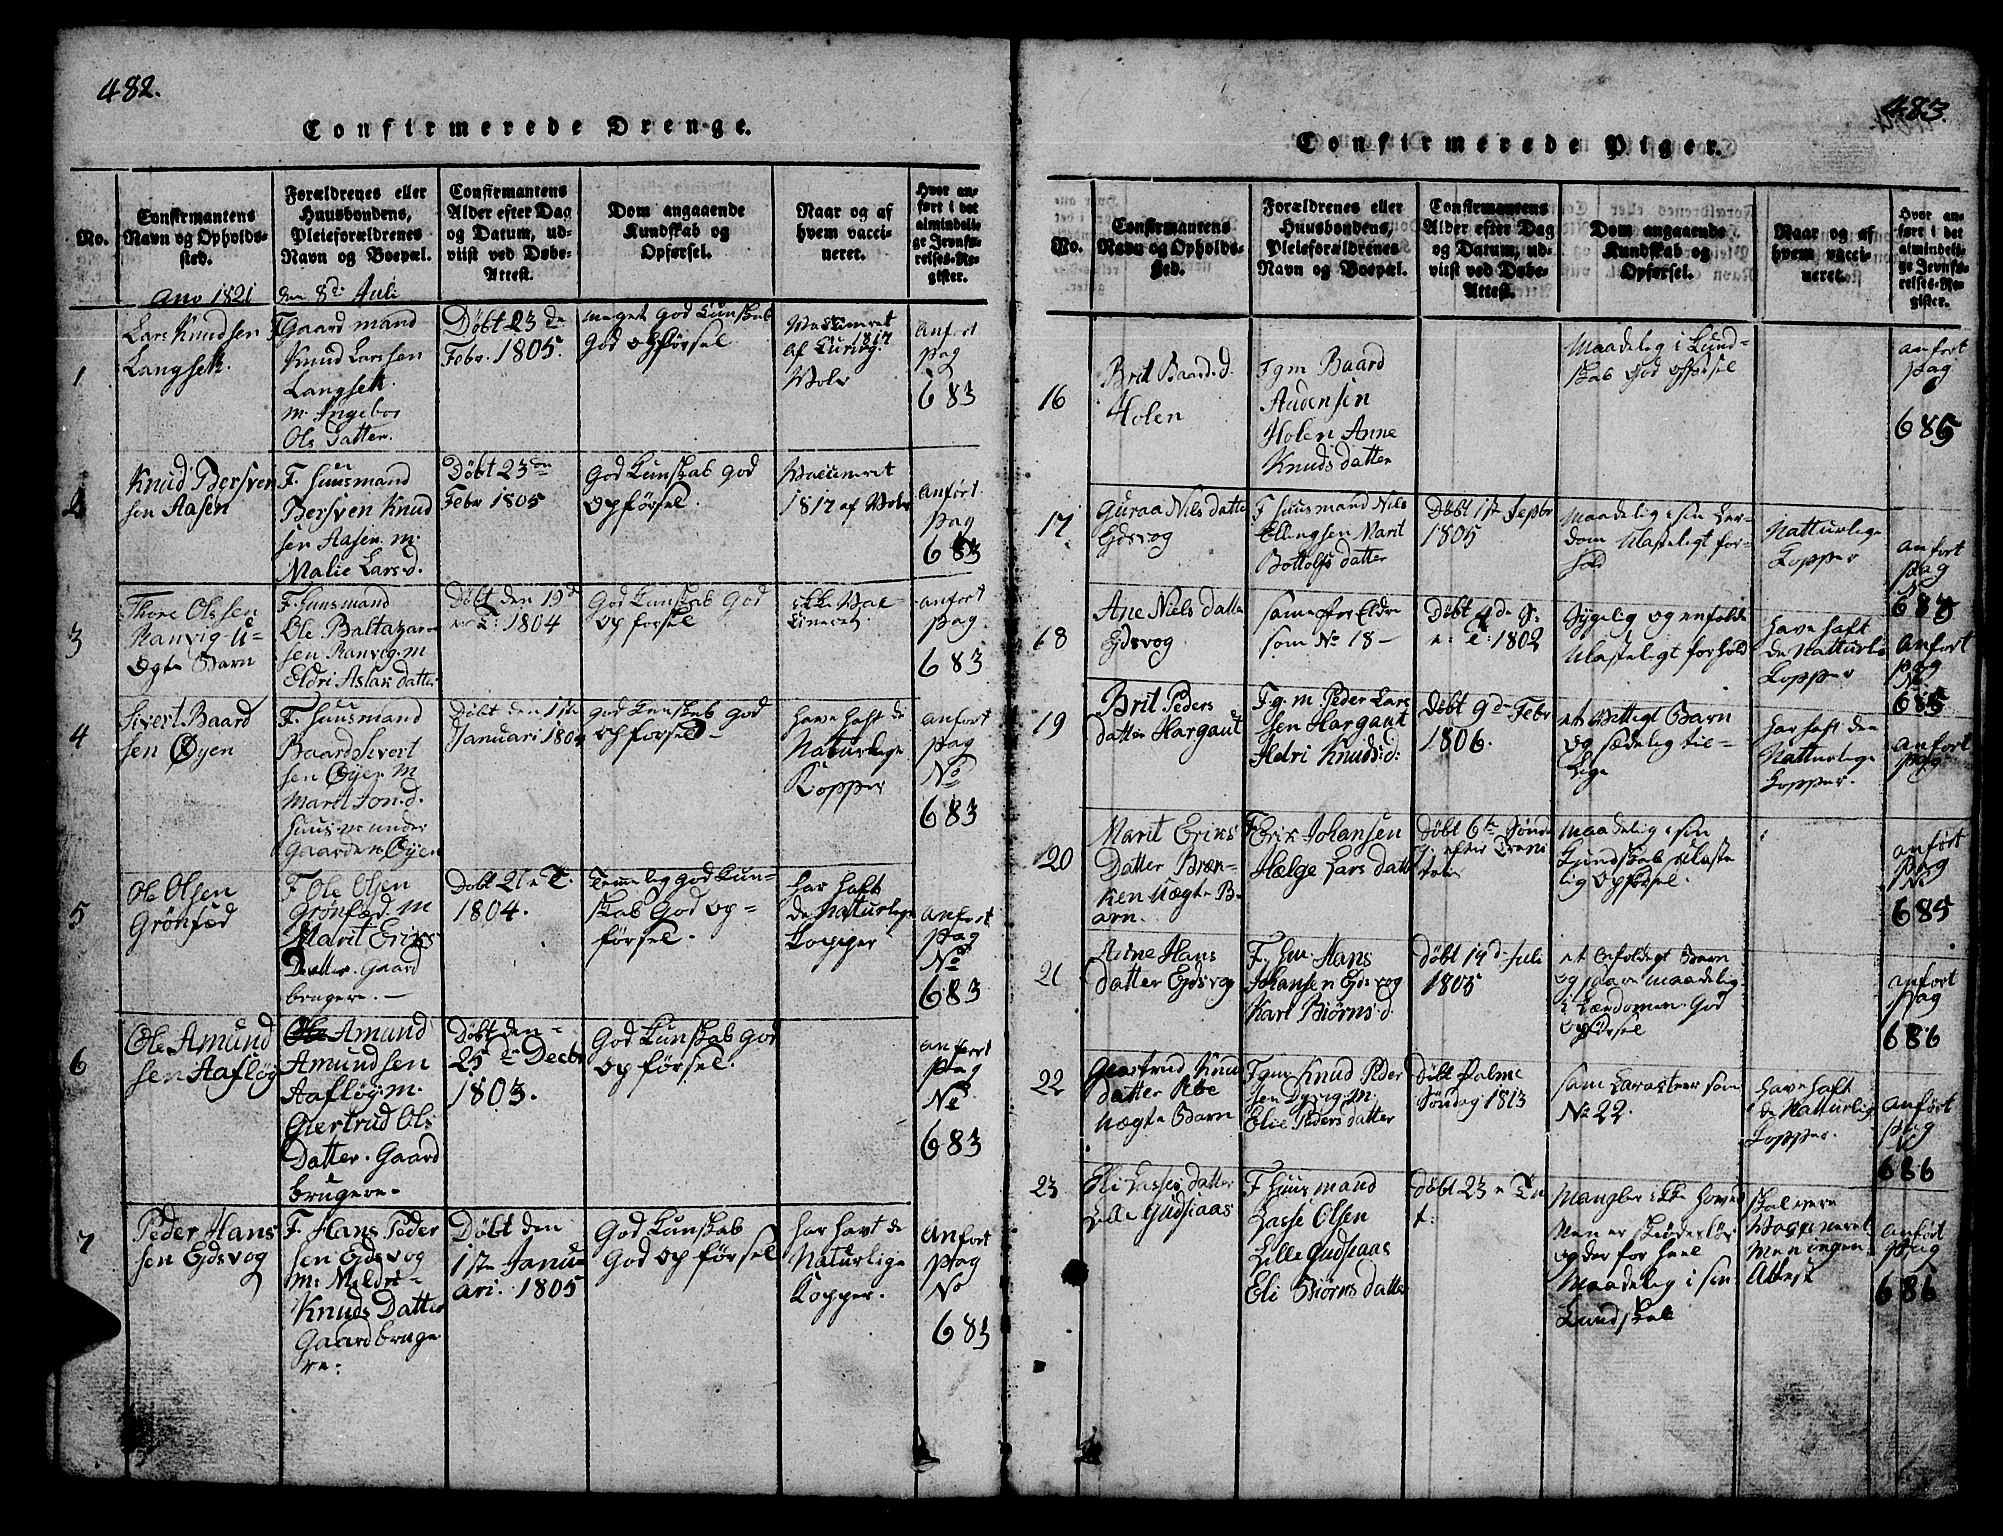 482.
Confirmerede Drenge.
No.
Confirmantens
Navn og Opholds-
sted.
Forældrenes eller
Huusbondens,
Pleieforældrenes
Navn og Boepæl.
Confirmantens
Alder efter Dag
og Datum, ud-
viist ved Døbe-
Attest.
Dom angaaende
Kundskab og
Opførsel.
Naar og af
hvem vacci-
neret.
Hvor an-
ført i det
almindeli-
ge Jevnfø-
relses-Re-
gister.
Ano 1821 den 8de Juli
1
Lars Knudsen
Langset.
F Gaard mand
Knud Larssen
Langset.
m. Ingebor
Ols Datter.
Døbt 23 de
Febr. 1805.
meget God Kunskab
God opførsel
1817
af
Wold
anført
pag
683
2
Knud Bersven
sen Aasen
F. Huusmand
Bersven Knud
sen Aasen. m.
Malie Lars.d.
Døbt 23 de
Febr 1805
God Kunskab god
Opførsel.
Vaccineret
1817 af Wold
anført.
pag
683
3
Thore Olssen
Ranvig U-
ægte Barn
F. Huusmand
Ole Baltazar
sen Ranvig. m
Eldri Aslak datter
Døbt den 19 d
e: T: 1804
God Kunskab God
opførsel
ikke Vac-
cineret.
anført
pag
683
4
Sivert Baard
sen Øyen
F. Huusmand
Baard Sivert
sen Øyen M
Marit Jon.d.
Huusm under
Gaarden Øyen
Døbt den 1ste
Januari 1804
god Kunskab God
opførsel
have haft de
Naturlige
Kopper
anført
pag
No
683
5
Ole Olsen
Grønsæd
F Ole Olsen
Grønsæd. M
Marit Eriks
Datter. Gaard
brugere.
Døbt 21 e T.
1804.
Temelig god Kun-
skab God op-
førsel.
har haft
de Natturlige
Kopper
anført
pag
No
683
6
Ole Amund
sen Aafløy
Ole Amund
Amundsen
Aafløy. m.
Giertrud Ols
Datter. Gaard
brugere-
Døbt den-
25 de Decbr
1803.
God Kunskab god
Opførsel.
anført
pag
No
683
7
Peder Hans
sen Eydsvog
F. Hans Peder
sen Eydsvog
m: Mildri-
Knuds Datter
Gaardbruge
re.
Døbt den
1ste Janu
ari. 1805
God Kunskab
God opførsel
har havt de
Naturlige
Kopper.
anført
pag
No
683
483.
Confirmerede Piger.
No.
Confirmantens
Navn og Opholds-
sted.
Forældrenes eller
Huusbondens,
Pleieforældrenes
Navn og Boepæl.
Confirmantens
Alder efter Dag
og Datum, ud-
viist ved Døbe-
Attest.
Dom angaaende
Kundskab og
Opførsel.
Naar og af
hvem vacci-
neret.
Hvor an-
ført i det
almindeli-
ge Jevnfø-
relses-Re-
gister.
16
Brit Baard.d.
Holen
F g m Baard
Audensen
Holen Anne
Knuds datter
Maadelig i Kund-
skab God opførsel
anført
pag
685
17
Guraa Nils Datte
Eydsvog
F Huusmand Nils
Ellingsen Marit
Bottolfs datter
Døbt 1ste Sepbr
1805
Maadelig i sin Lær-
dom Ulasteligt for-
hold
Natturlige
Kopper
anført
pag
No
18
Ane Niels datte
Eydsvog
same forEldre
som No 18-
Døbt 4 de S:
e: T: 1802
Sygelig og enfoldi
Ulasteligt forhold
have haft
de Natturli
Kopper
anført
pag
No
685
19
Brit Peders
datter Hargaut
F g. m. Peder Lars
sen Hargaut
Aldri Knuds:d:
Døbt 9 de Febr
1806.
et Vittigt Barn
og sædelig til-
lige
har haft den
Natturlige
Kopper.
anført
pag
20
Marit Eriks
Datter Bræn-
ken Uægte B-
arn.
F Erik Johansen
Hælge Lars datt
Døbt 6te Sønda
g. efter Trini
tatis
Maadelig i sin
Kundskab Ulaste
lig Opførsel.
anført
pag
No
685
21
Anne Hans
datter Eydsvog
F. hm. Hans
Johansen Eydsvog
Kari Biørns d.
Døbt 14 d. Juli
1805
et Enfoldigt Barn
og saare maadelig
i Lærdomen God
opførsel
anført
pag
686
22
Giertrud Knu
datter
Uægte Barn
F gm Knud Peder
sen Dyvig. m.
Elie Peders datter
Døbt Palme
Søndag 1813
som Caracteer som
No 22.
have haft
de Natturlig
Kopper.
anført
pag
686
23
Eli Lasses datter
Lille Gudsiaas
F Huusmand
Lasse Olsen
Lille Gudsiaas
Eli Biørns datter
Døbt 23 e Tr
t:
Mangler ikke hoved
Men er skiødesløs
og derfor heel
Maadelig i sin
Kundskab
skal være
Vaccineret
Men ingen
Attest
anført
pag
686